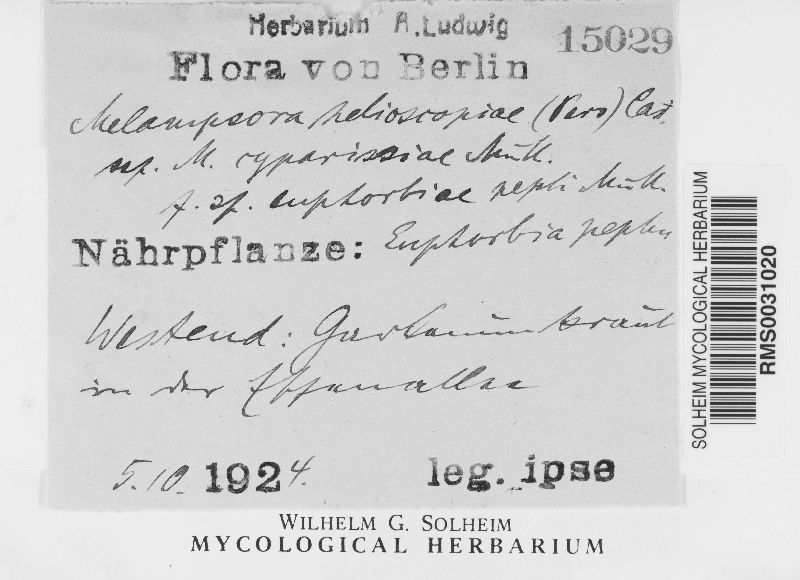 Herbarium A. Ludwig
15029
Flora von Berlin
Melampsora helioscopiae (Pers) Cast.
sp. M. cyparissiae Müll.
f. sp. euphorbiae pepli Müll.
Nährpflanze: Euphorbia peplus
Westend: Gartenunkraut
in der
5.10.1924. leg. ipse
SOLHEIM MYCOLOGICAL HERBARIUM
RMS0031020
WILHELM G. SOLHEIM
MYCOLOGICAL HERBARIUM